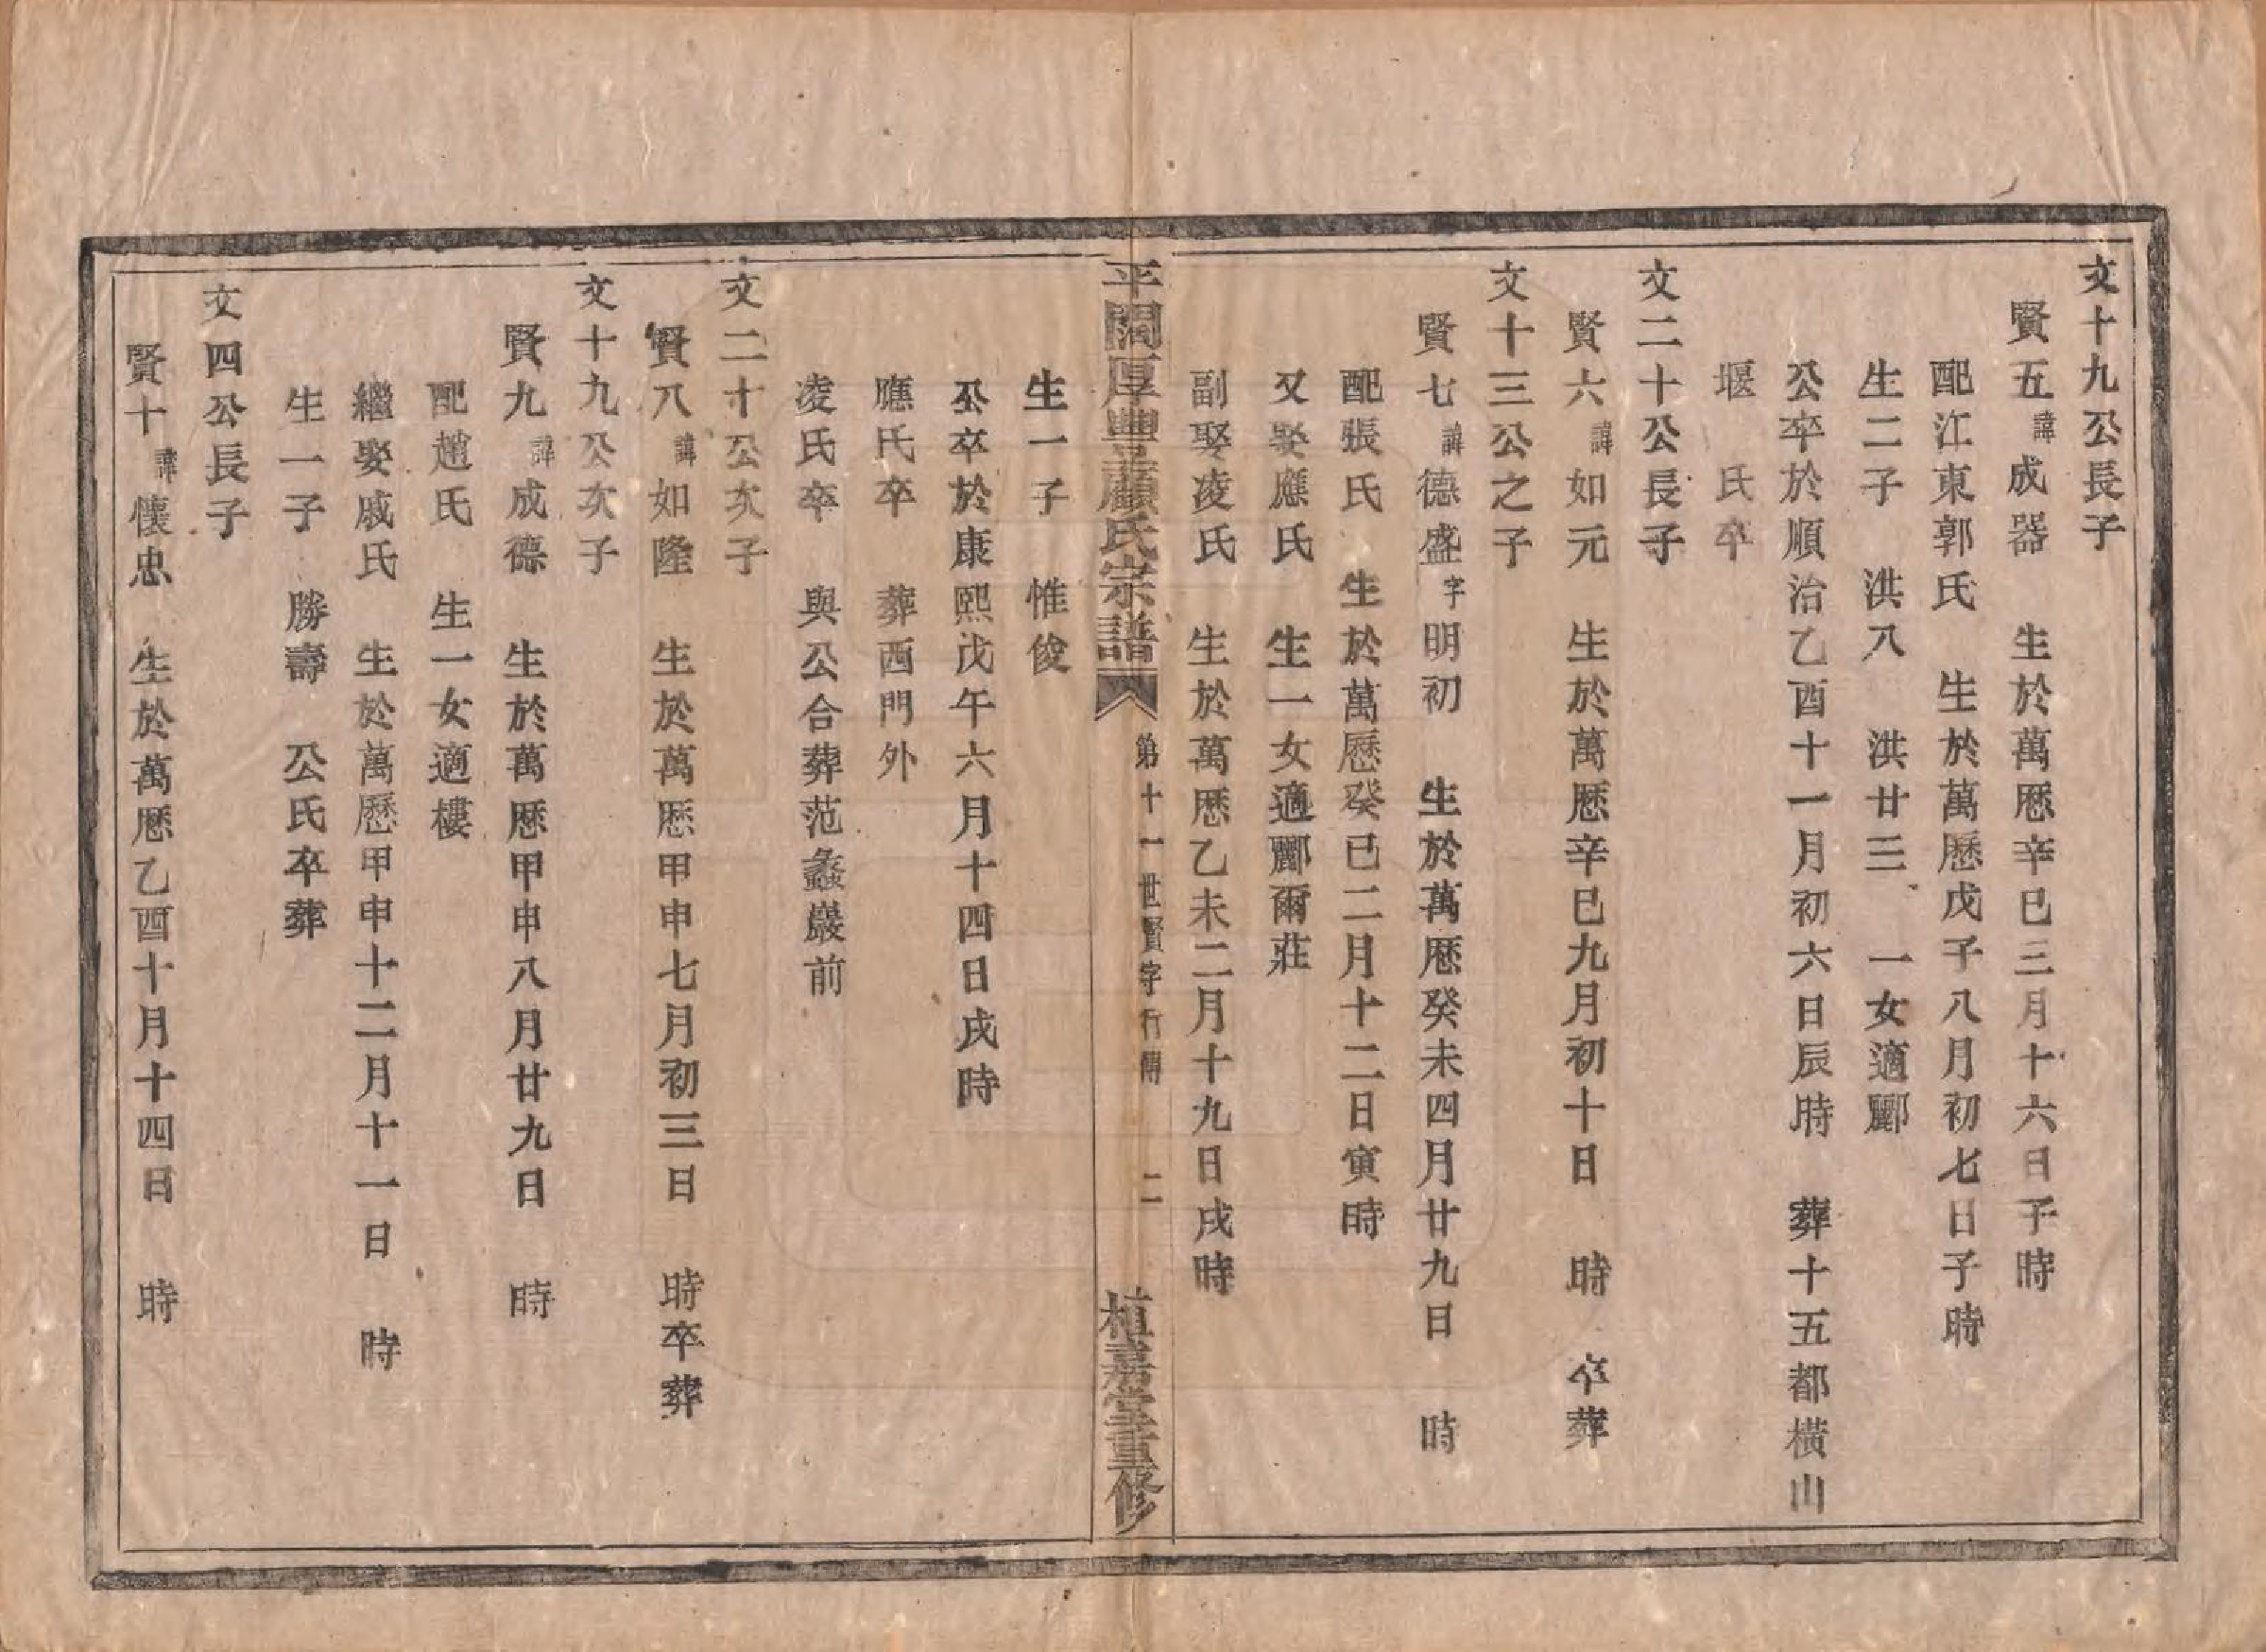 文十九公長子
賢五諱成器　生於萬厯辛巳三月十六日子時
配江東郭氏　生於萬厯戊子八月初七日子時
生二子　洪八　洪廿三　一女適酈
公卒於順治乙酉十一月初六日辰時　葬十五都橫山
堰　氏卒
文二十公長子
賢六諱如元　生於萬厯辛巳九月初十日　時　卒葬
文十三公之子
賢七諱德盛字明初　生於萬厯癸未四月廿九日　時
配張氏　生於萬厯癸巳二月十二日寅時
又娶應氏　生一女適酈爾莊
副娶凌氏　生於萬厯乙未二月十九日戌時
平闊厚豐孟顧氏宗譜　第十一世賢字行傳　二　植嘉堂重修
生一子　惟俊
公卒於康熙戊午六月十四日戌時
應氏卒　葬西門外
凌氏卒　與公合葬范蠡巖前
文二十公次子
賢八諱如隆　生於萬厯甲申七月初三日　時卒葬
文十九公次子
賢九諱成德　生於萬厯甲申八月廿九日　時
配趙氏　生一女適樓
繼娶戚氏　生於萬厯甲申十二月十一日　時
生一子　勝壽　公氏卒葬
文四公長子
賢十諱懷忠　生於萬厯乙酉十月十四日　時